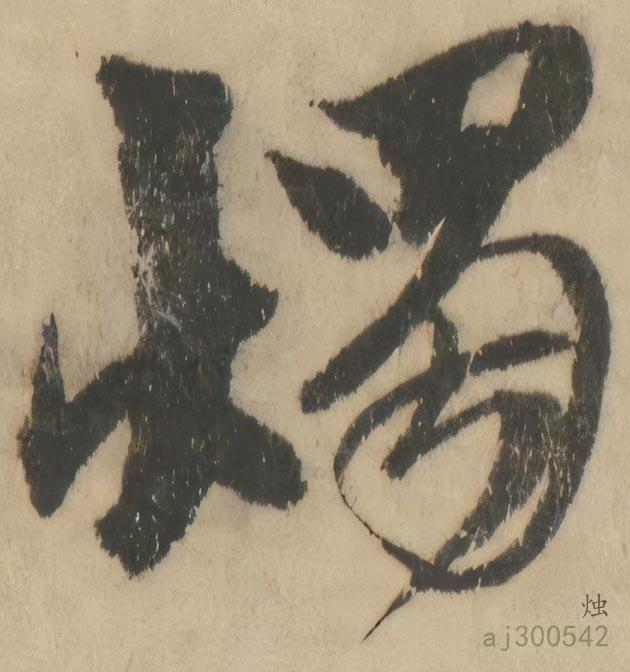 燭
烛
aj300542